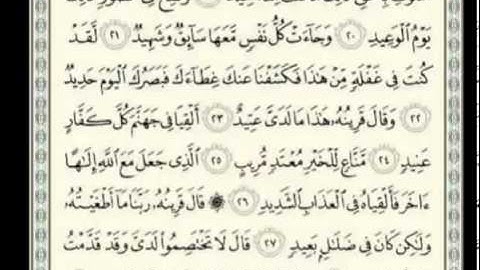 يَوْمُ ٱلْوَعِيدِ ٢٠ وَجَآءَتْ كُلُّ نَفْسٍ مَّعَهَا سَآئِقٌ وَشَهِيدٌ ٢١ لَّقَدْ
كُنتَ فِى غَفْلَةٍ مِّنْ هَٰذَا فَكَشَفْنَا عَنكَ غِطَآءَكَ فَبَصَرُكَ ٱلْيَوْمَ حَدِيدٌ
٢٢ وَقَالَ قَرِينُهُۥ هَٰذَا مَا لَدَىَّ عَتِيدٌ ٢٣ أَلْقِيَا فِى جَهَنَّمَ كُلَّ كَفَّارٍ
عَنِيدٍ ٢٤ مَّنَّاعٍ لِّلْخَيْرِ مُعْتَدٍ مُّرِيبٍ ٢٥ ٱلَّذِى جَعَلَ مَعَ ٱللَّهِ إِلَٰهًا
ءَاخَرَ فَأَلْقِيَاهُ فِى ٱلْعَذَابِ ٱلشَّدِيدِ ٢٦ ۞ قَالَ قَرِينُهُۥ رَبَّنَا مَآ أَطْغَيْتُهُۥ
وَلَٰكِن كَانَ فِى ضَلَٰلٍۭ بَعِيدٍ ٢٧ قَالَ لَا تَخْتَصِمُوا۟ لَدَىَّ وَقَدْ قَدَّمْتُ